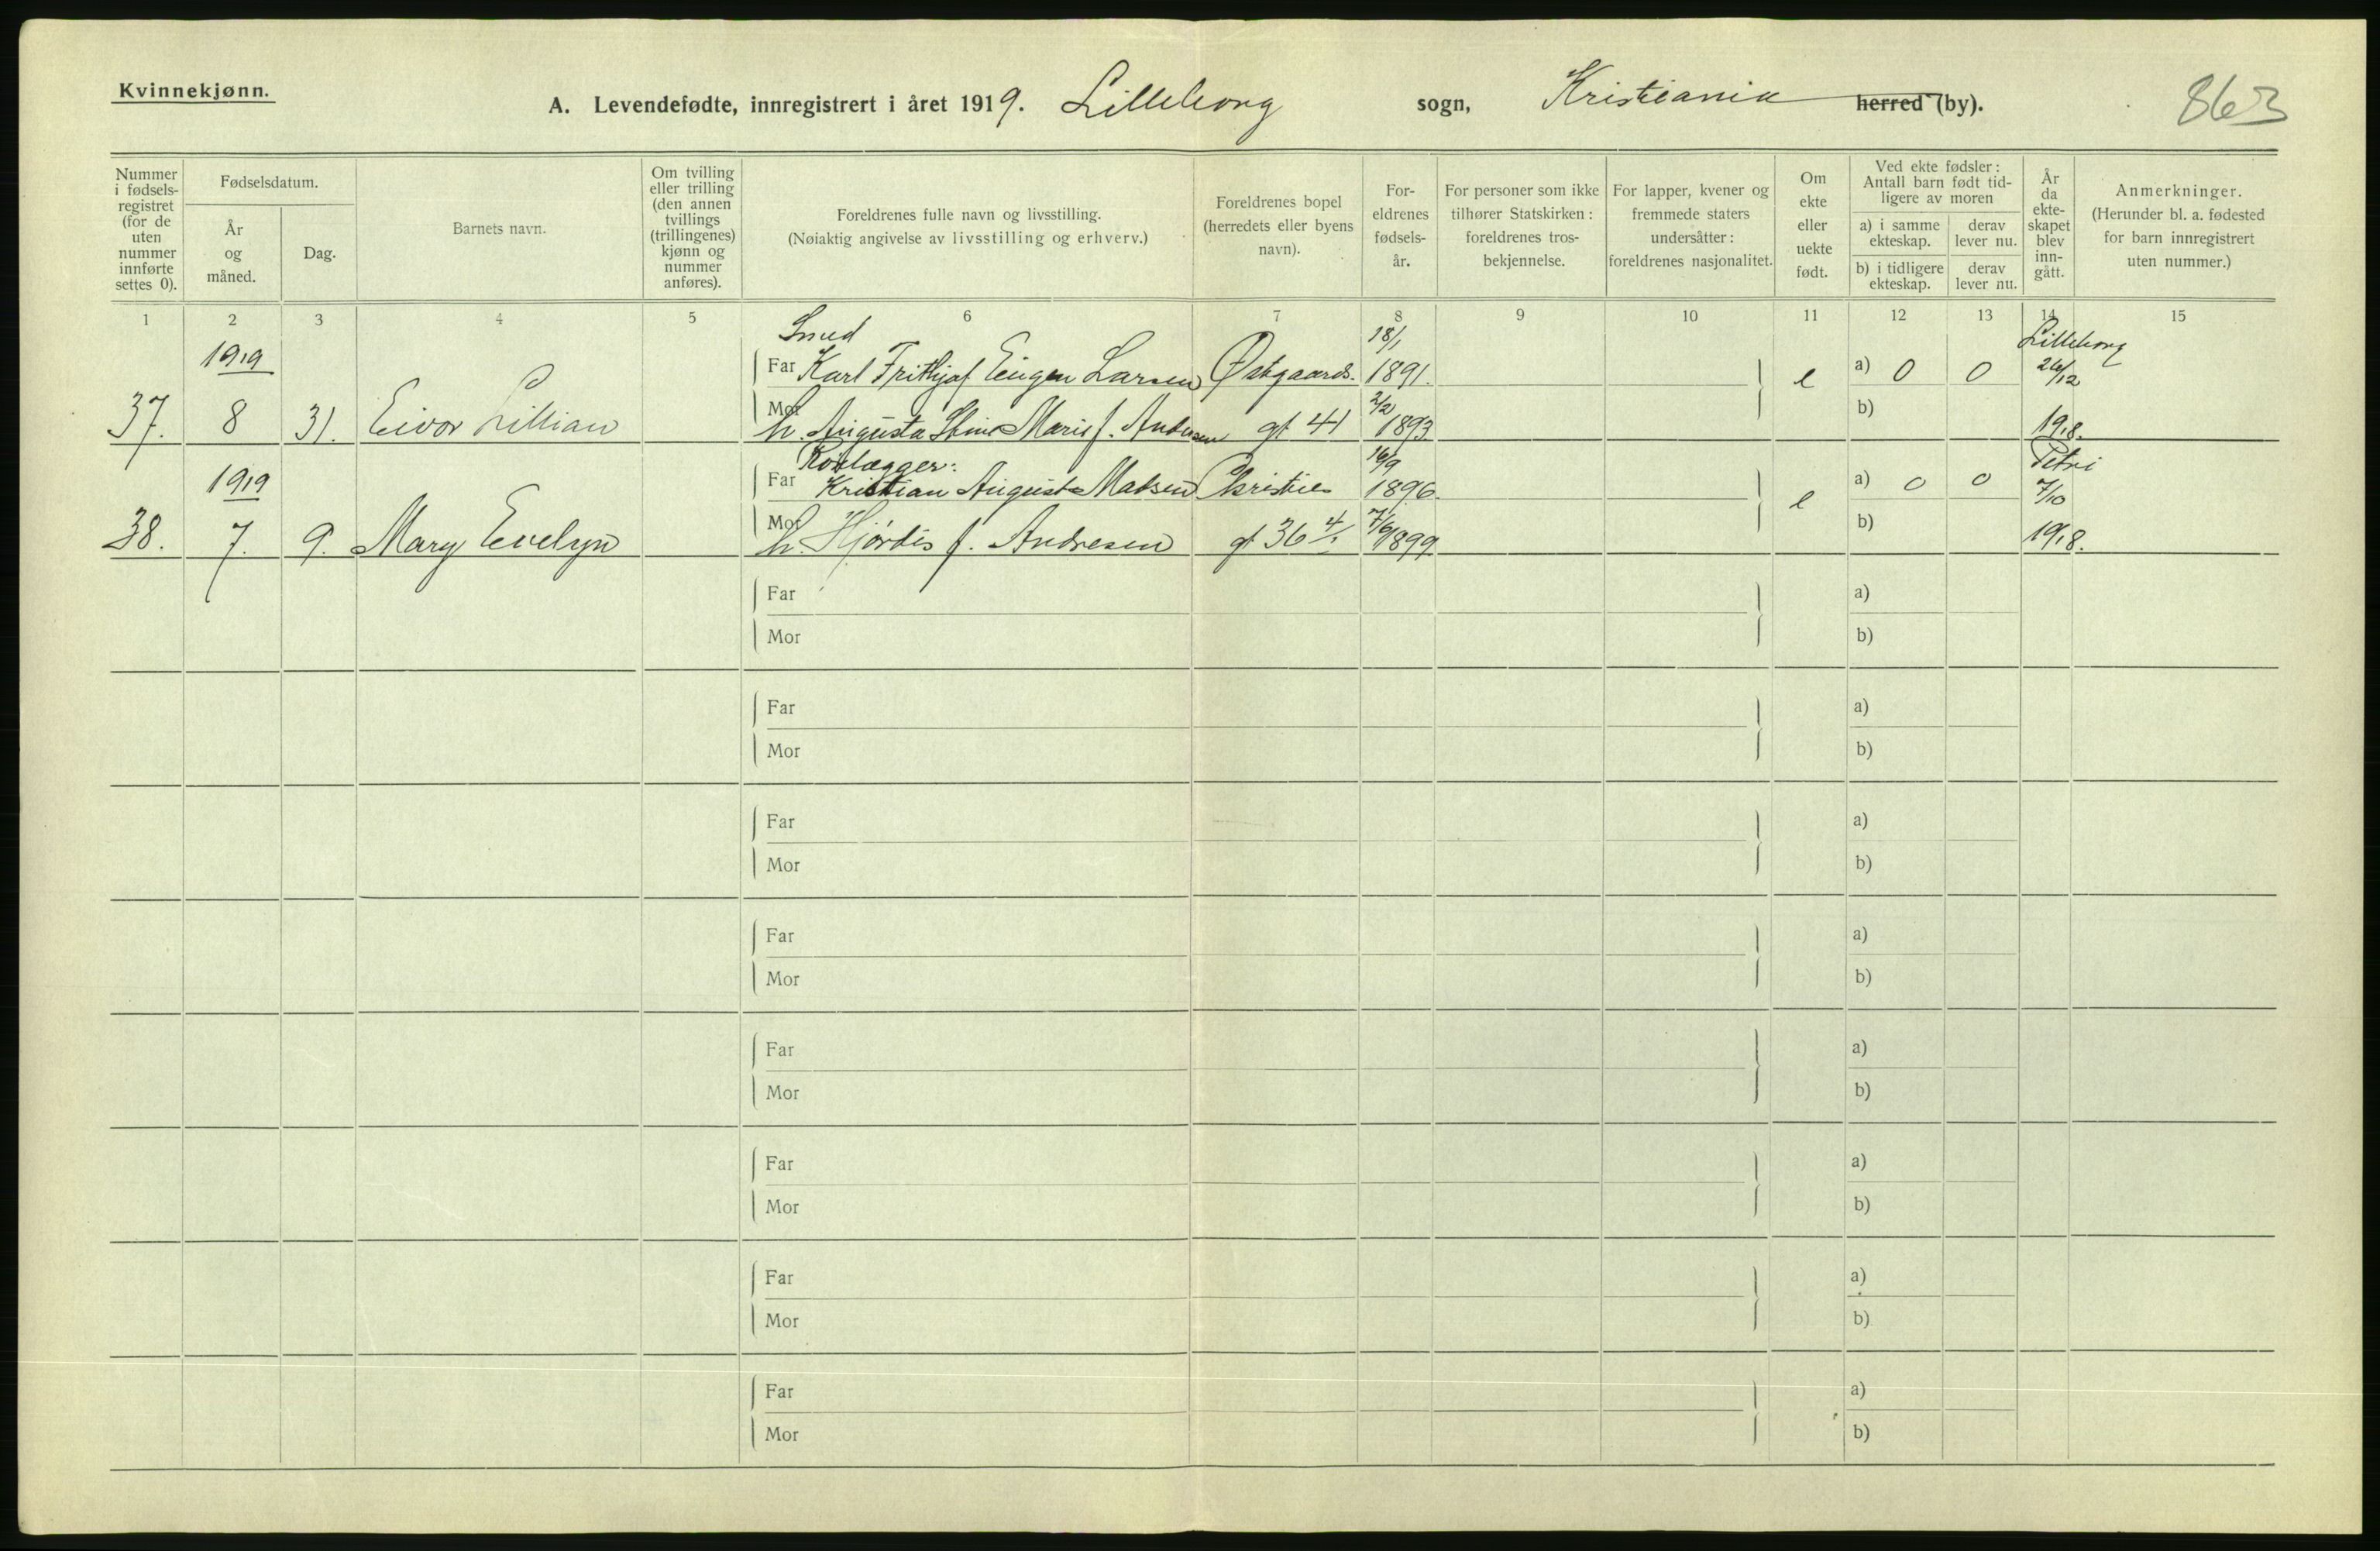 Kvinnekjønn.
A. Levendefødte, innregistrert i året 1919. Lilleborg sogn, Kristiania herred (by).
863
Nummer i fødsels-registret (for de uten nummer innførte settes 0).
Fødselsdatum.
År og måned.
Dag.
Barnets navn.
Om tvilling eller trilling (den annen tvillings (trillingenes) kjønn og nummer anføres).
Foreldrenes fulle navn og livsstilling.
(Nøiaktig angivelse av livsstilling og erhverv.)
Foreldrenes bopel (herredets eller byens navn).
For-eldrenes fødsels-år.
For personer som ikke tilhører Statskirken: foreldrenes tros-bekjennelse.
For lapper, kvener og fremmede staters undersåtter: foreldrenes nasjonalitet.
Om ekte eller uekte født.
Ved ekte fødsler: Antall barn født tid-ligere av moren
a) i samme ekteskap.
derav lever nu.
b) i tidligere ekteskap.
derav lever nu.
År da ekte-skapet blev inn-gått.
Anmerkninger.
(Herunder bl. a. fødested for barn innregistrert uten nummer.)
1 2 3 4 5 6 7 8 9 10 11 12 13 14 15
Smed 18/1 Lilleborg
1919 Far Karl Frithjof Eugen Larsen Østgaards. 1891. e a) 0 0 26/12
37. 8 31. Eivor Lillian Mor h. Augusta Marie f. Andersen gt 41 2/2 1893 b) 1918.
Rørlægger: 16/9 Petri
1919 Far Kristian August Madsen Christies 1896. e a) 0 0 7/10
38. 7. 9. Mary Evelyn Mor h. Hjørdis f. Andresen gt 36 4/1 7/6 1899 b) 1918.
Far a)
Mor b)
Far a)
Mor b)
Far a)
Mor b)
Far a)
Mor b)
Far a)
Mor b)
Far a)
Mor b)
Far a)
Mor b)
Far a)
Mor b)